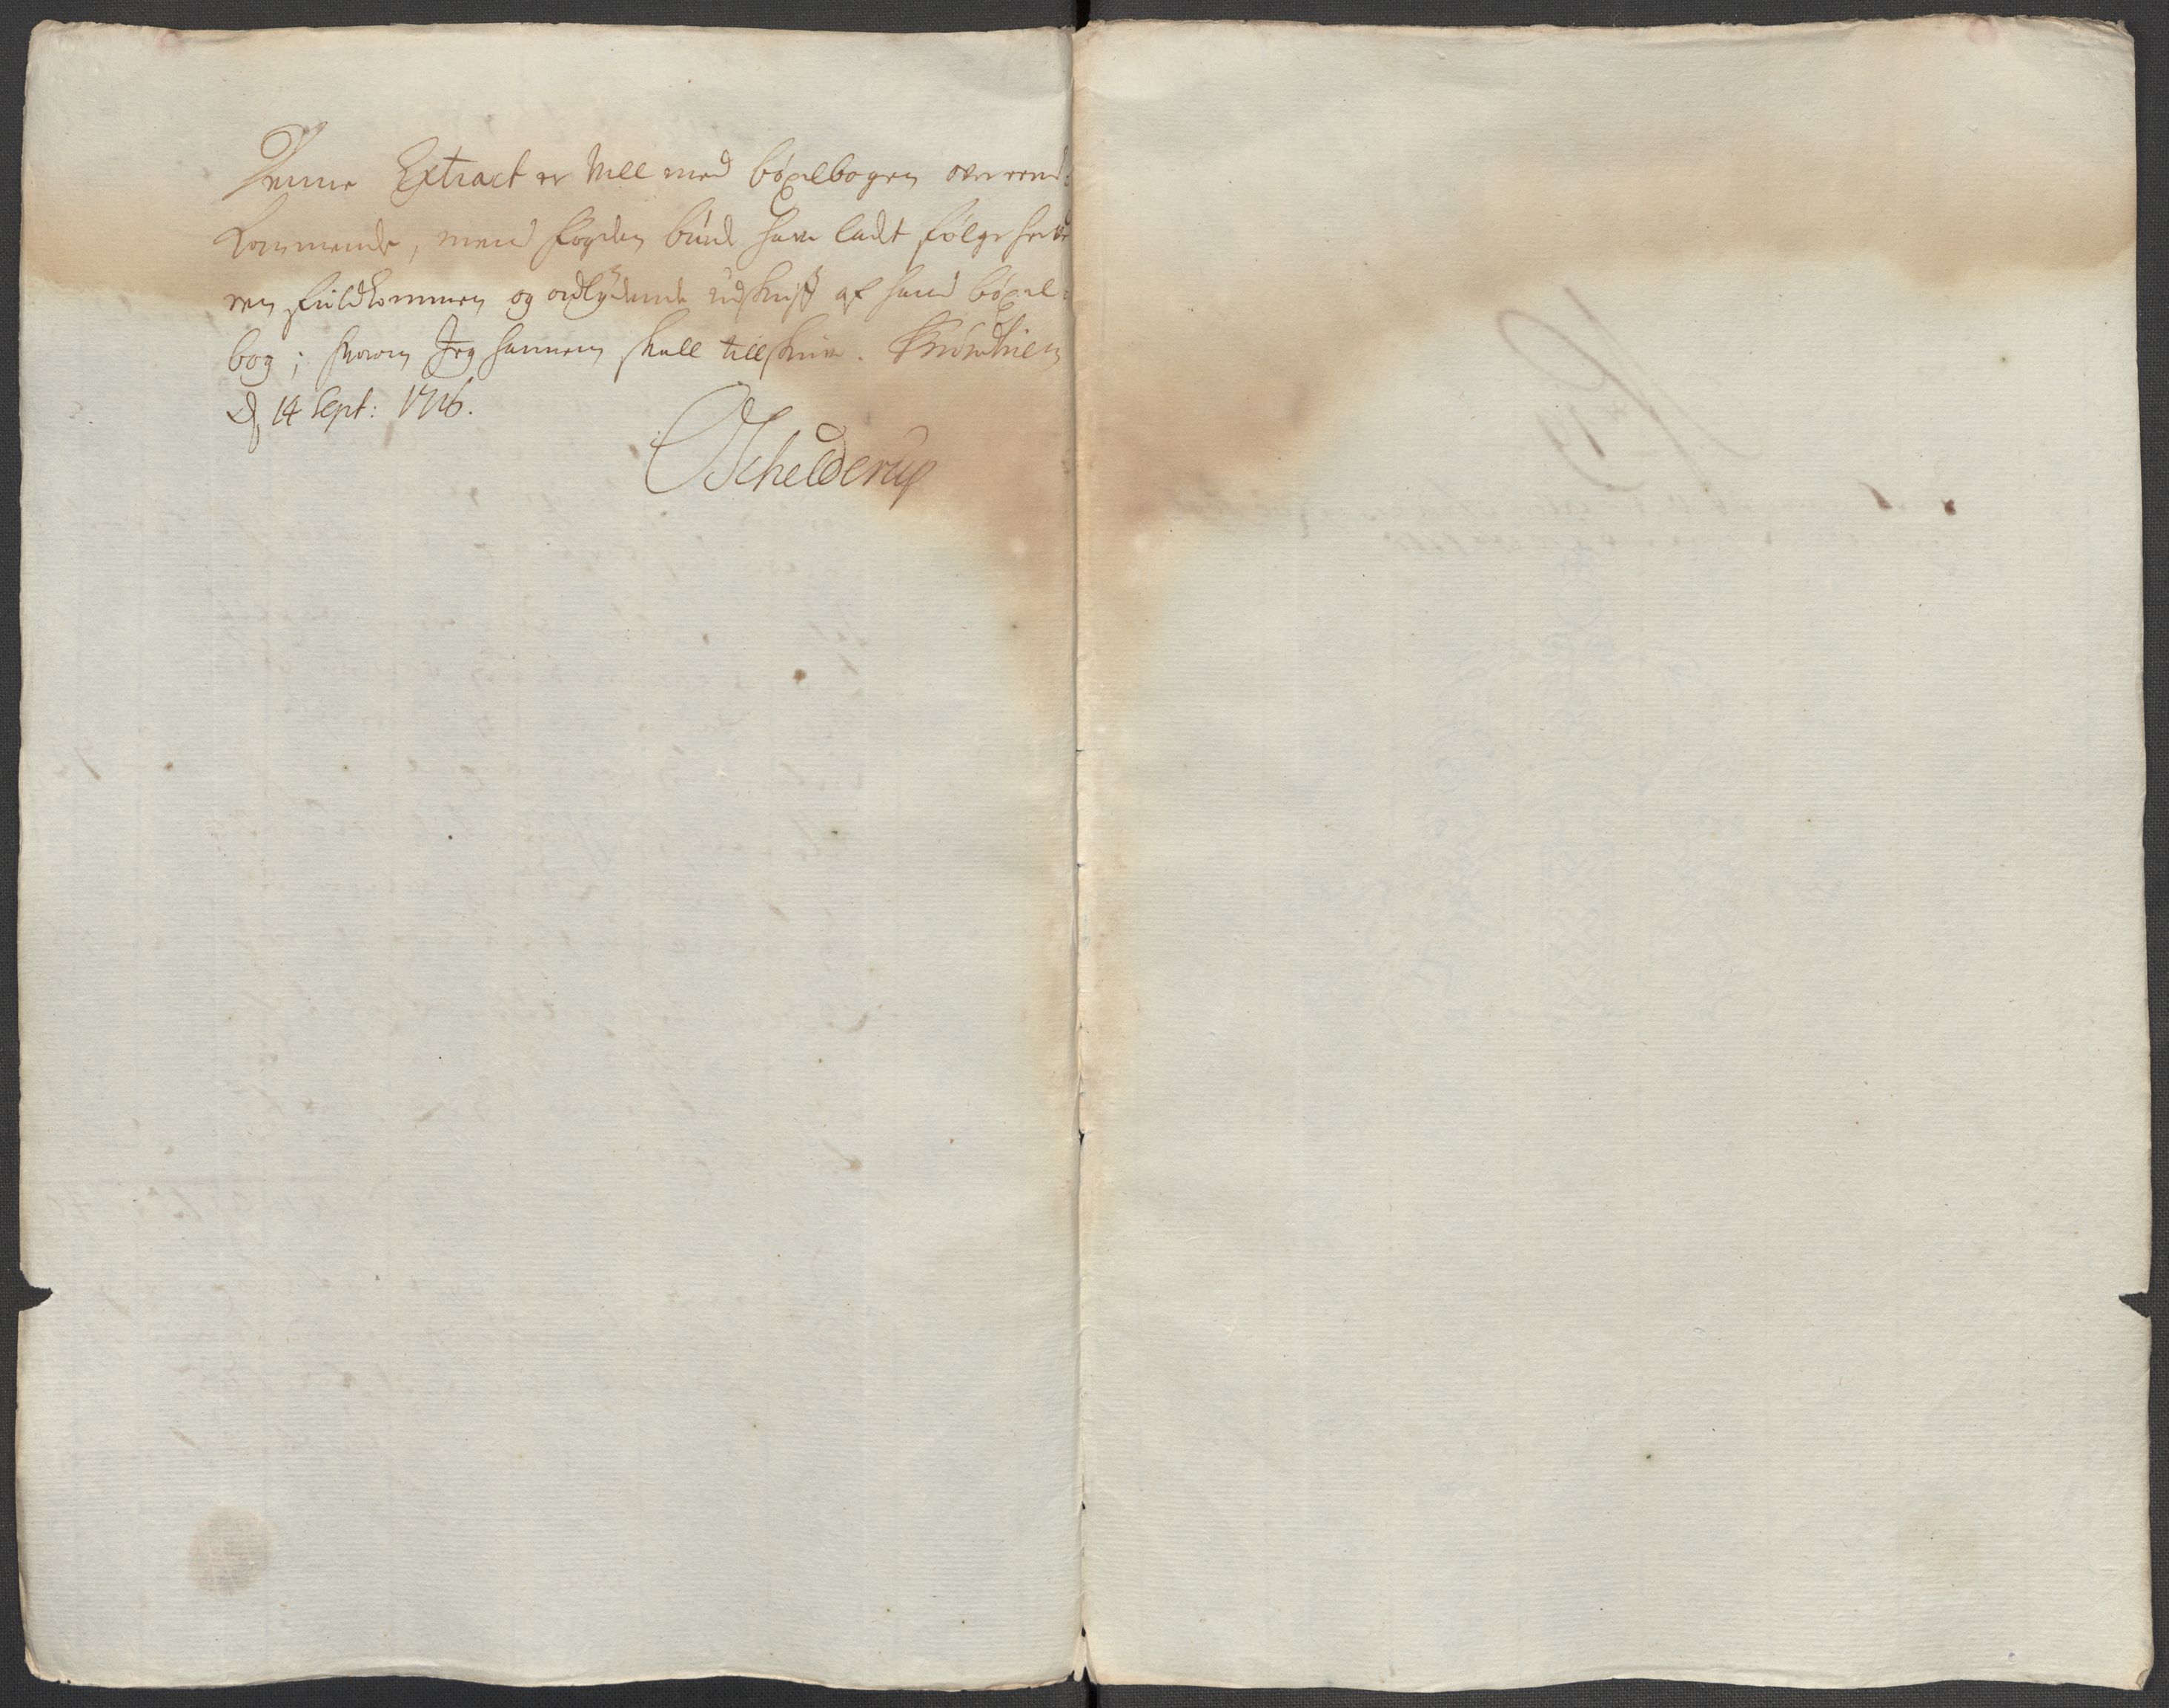 Denne Extract er vell med böxelbogen ofver eens¬
kommende, mens fogden burde hafve ladt fölge her ved
een fuldkommen og ordlydende udskrift af hans böxel¬
bog; hvorom Jeg hannem skall tillskrive. Trundhiem
d 14 Sept: 1716.
OSchelderup